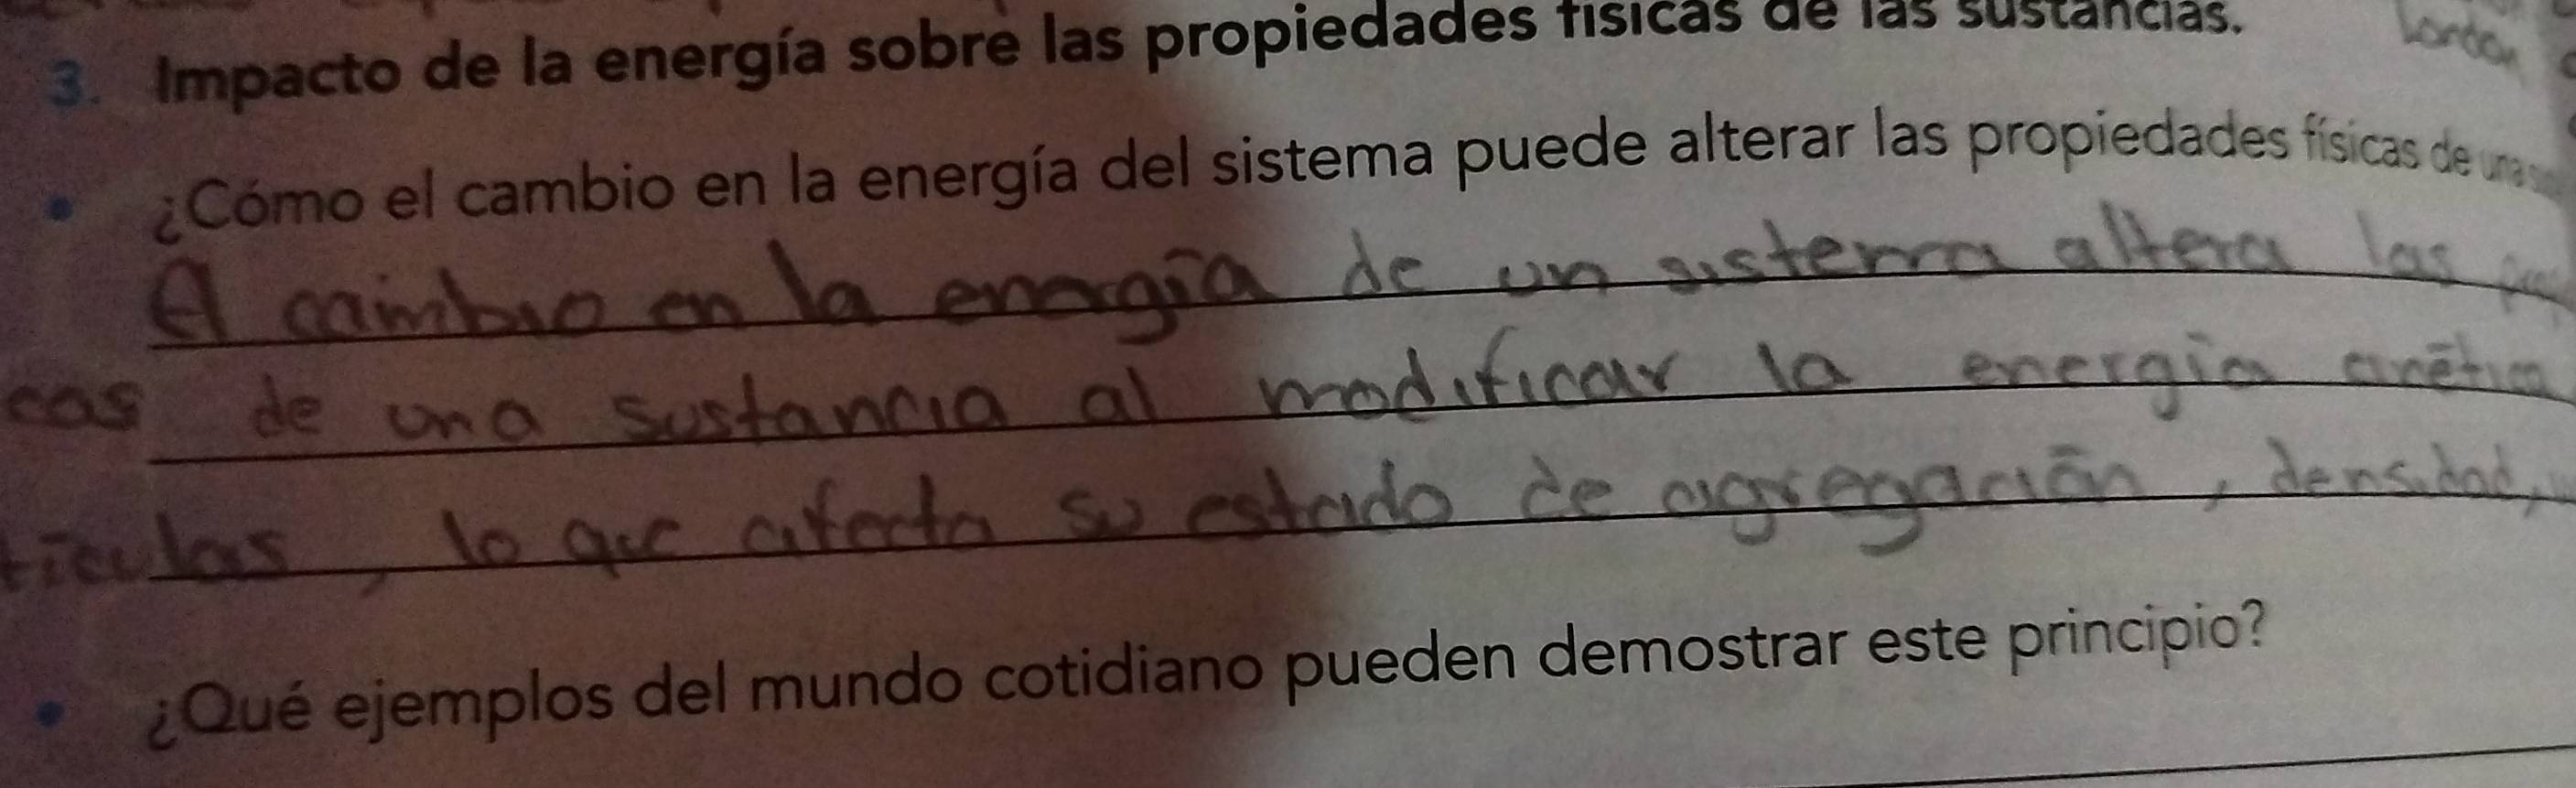 London
3. Impacto de la energía sobre las propiedades físicas de las sustancias.
¿Cómo el cambio en la energía del sistema puede alterar las propiedades físicas de una
El cambio en la energía de un sistema altera las
cas de una sustancia al modificar la energía cinética
tículas, lo que afecta su estado de agregación, densidad,
¿Qué ejemplos del mundo cotidiano pueden demostrar este principio?